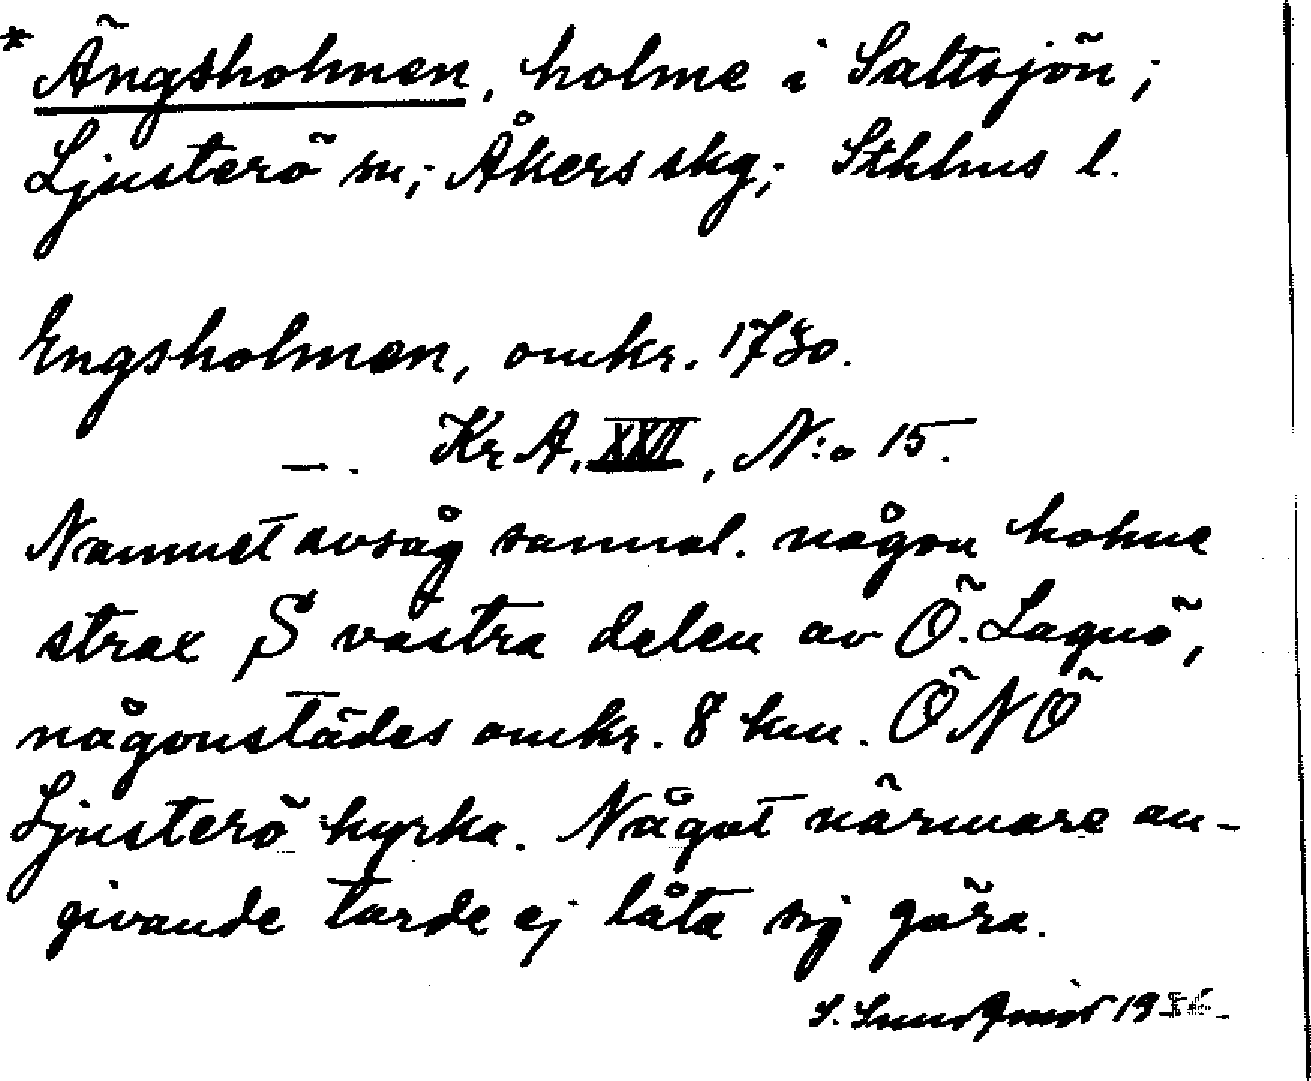 * Ängsholmen, holme i Saltsjön;
Ljusterö sn; Åkers skg; Sthlms l.
Engsholmen, omkr. 1730.
—. Kr A. XXII, N:o 15.
Namnet avsåg sannol. någon holme
strax S västra delen av Ö. Lagnö,
någonstädes omkr. 8 km. ÖNÖ
Ljusterö kyrka. Något närmare an-
givande torde ej låta sig göra.
S. 19